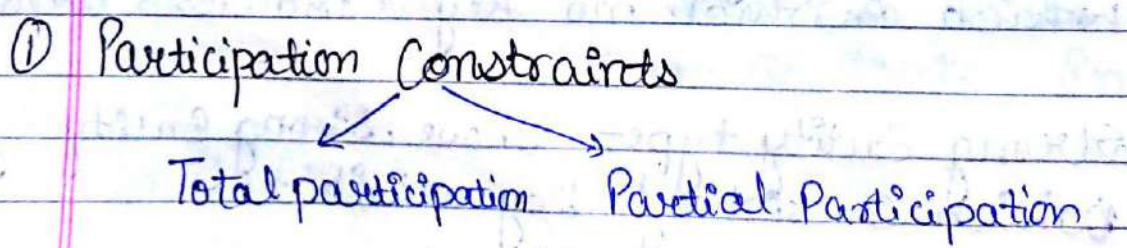 ① Participation Constraints
Total participation Partial Participation